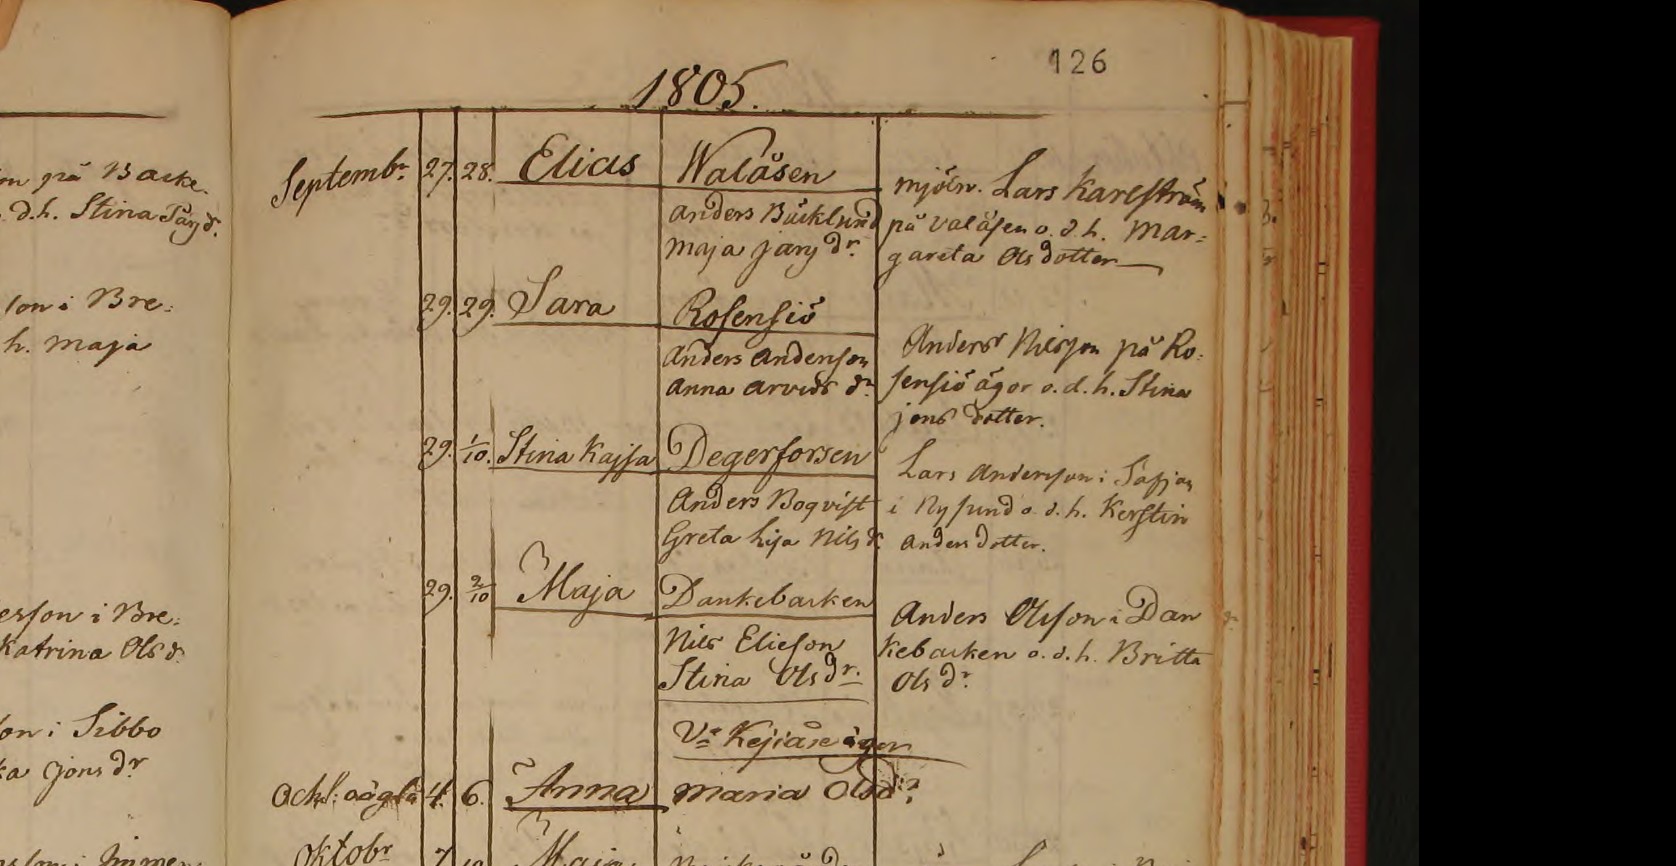 126
1805.
på Backe-
d.h. Stina
son i Bre:
h. Maja
ersson i Bre:
Katrina Olsd.
son i Sibbo
Jonsdr
Septembr. 27. 28. Elias Walåsen
Anders Bäcklund
Maja Jansdr.
mjöln. Lars Karlström
på Valåsen o. d. h. Mar=
gareta Olsdotter
29. 29. Sara Rosensiö
Anders Anderson
Anna Arvidsdr.
Anders Nilsson på Ro-
sensiö ägor o. d. h. Stina
Jonsdotter.
29. 1/10. Stina Kajsa Degerforsen
Anders Boqvist
Greta Lisa Nilsd.
Lars Andersson i
i Nysund o. d. h. Kerstin
Andersdotter.
29. 2/10 Maja Dankebacken
Nils Elieson
Stina Olsdr.
Anders Olsson i Dan
kebacken o. d. h. Britta
Olsdr.
ägor
4. 6. Anna Maria Olsdr.
Oktobr 7 Maja